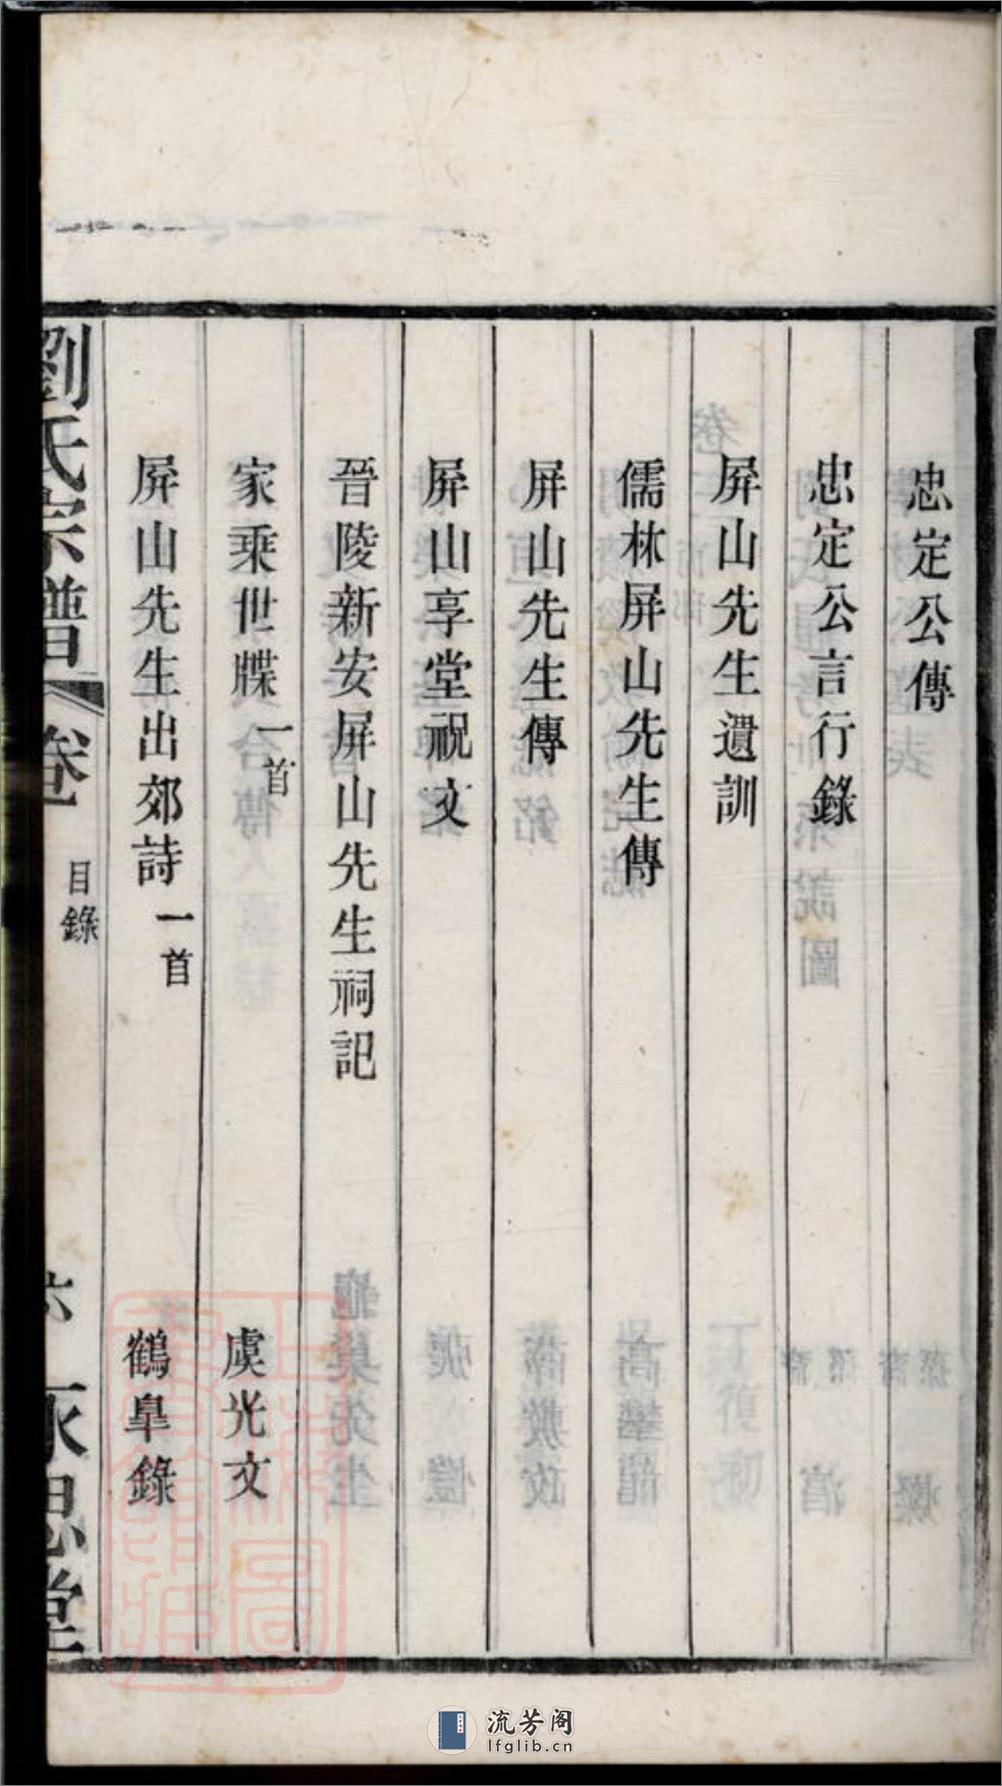 忠定公傳
忠定公言行錄
屏山先生遺訓
儒林屏山先生傳
屏山先生傳
屏山享堂祝文
晉陵新安屏山先生祠記
家乘世牒一首 虞光文
屏山先生出郊詩一首 鶴阜錄
劉氏宗譜 卷 目錄 六 永思堂
流芳阁
lfglib.cn